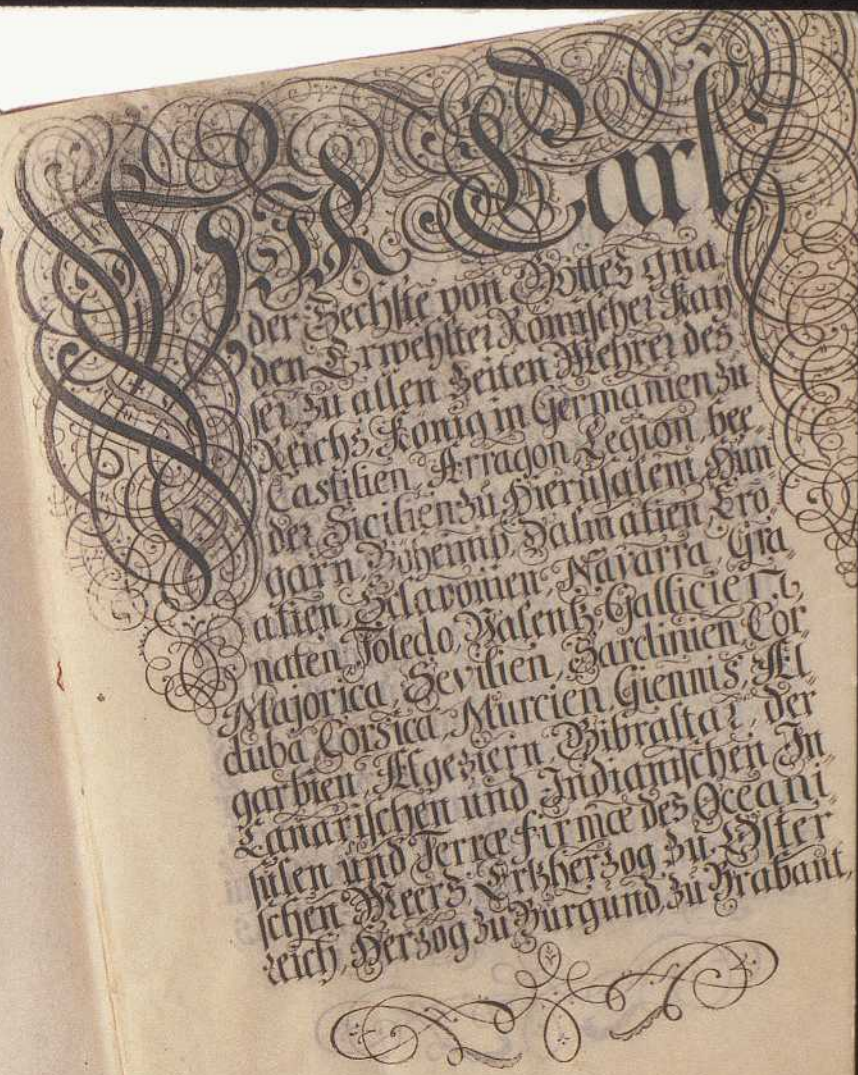 WIR Carl
der Sechste von Gottes gna„
den Erwehlter Römischer Kay„
ser zu allen Zeiten Mehrer des
Reichs, König in Germanien zu
Castilien, Arragon, Legion, bee„
der Sicilien zu Hierusalem, Hun„
garn, Böheimb, Dalmatien, Cro„
atien, Sclavonien, Navarra, Gra„
naten, Toledo, Valentz, Gallicien,
Majorica, Sevilien, Sardinien, Cor„
duba, Corsica, Murcien, Giennis, Al„
garbien, Algeziern, Gibraltar, der
Canarischen und Indianischen In„
sulen und Terræ firmæ des Oceani„
schen Meers, Ertzherzog zu Öster„
reich, Herzog zu Burgund, zu Brabant,